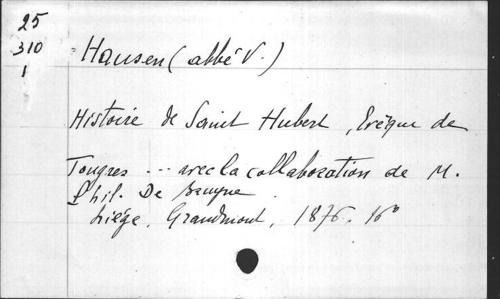 25
310
1
Hansen (abbé V.)
Histoire de Saint Hubert, Evêque de
Tongres ... avec la collaboration de M.
Phil. De Bruyne
Liége, Grandmont, 1876. 16°